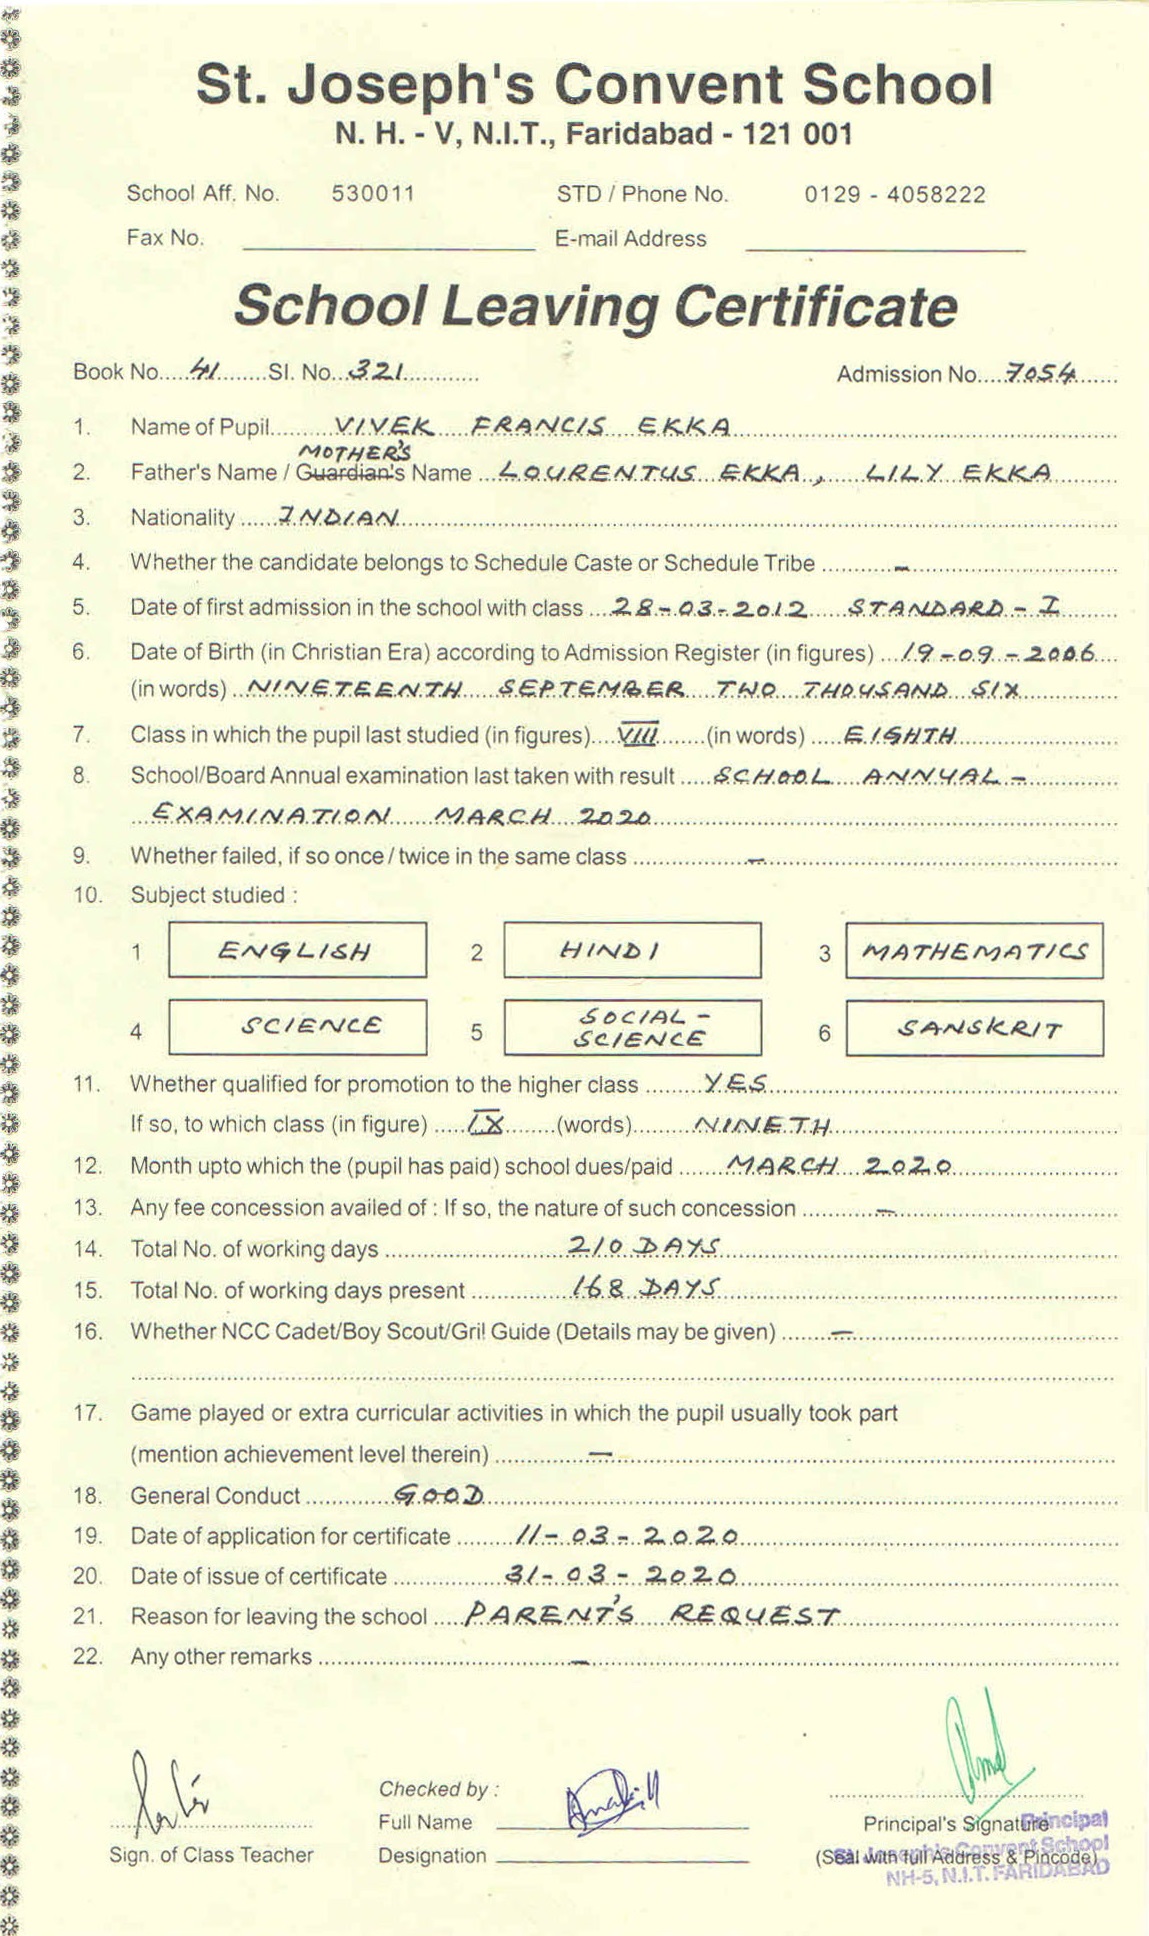 St. Joseph's Convent School
N. H. - V, N.I.T., Faridabad - 121 001
School Aff. No. 530011 STD / Phone No. 0129 - 4058222
Fax No. E-mail Address
School Leaving Certificate
Book No. 41 Sl. No. 321 Admission No. 7054
1. Name of Pupil VIVEK FRANCIS EKKA
MOTHER'S
2. Father's Name / Guardian's Name LOURENTUS EKKA, LILY EKKA
3. Nationality INDIAN
4. Whether the candidate belongs to Schedule Caste or Schedule Tribe -
5. Date of first admission in the school with class 28-03-2012 STANDARD - I
6. Date of Birth (in Christian Era) according to Admission Register (in figures) 19-09-2006
(in words) NINETEENTH SEPTEMBER TWO THOUSAND SIX
7. Class in which the pupil last studied (in figures) VIII (in words) EIGHTH
8. School/Board Annual examination last taken with result SCHOOL ANNUAL -
EXAMINATION MARCH 2020
9. Whether failed, if so once / twice in the same class -
10. Subject studied :
1 ENGLISH 2 HINDI 3 MATHEMATICS
4 SCIENCE 5 SOCIAL - SCIENCE 6 SANSKRIT
11. Whether qualified for promotion to the higher class YES
If so, to which class (in figure) IX (words) NINETH
12. Month upto which the (pupil has paid) school dues/paid MARCH 2020
13. Any fee concession availed of : If so, the nature of such concession -
14. Total No. of working days 210 DAYS
15. Total No. of working days present 168 DAYS
16. Whether NCC Cadet/Boy Scout/Gril Guide (Details may be given) -
17. Game played or extra curricular activities in which the pupil usually took part
(mention achievement level therein) -
18. General Conduct GOOD
19. Date of application for certificate 11-03-2020
20. Date of issue of certificate 31-03-2020
21. Reason for leaving the school PARENT'S REQUEST
22. Any other remarks -
Checked by :
Full Name
Principal's Signature
Principal
Sign. of Class Teacher Designation (Seal with full Address & Pincode)
St. Joseph's Convent School
NH-5, N.I.T. FARIDABAD